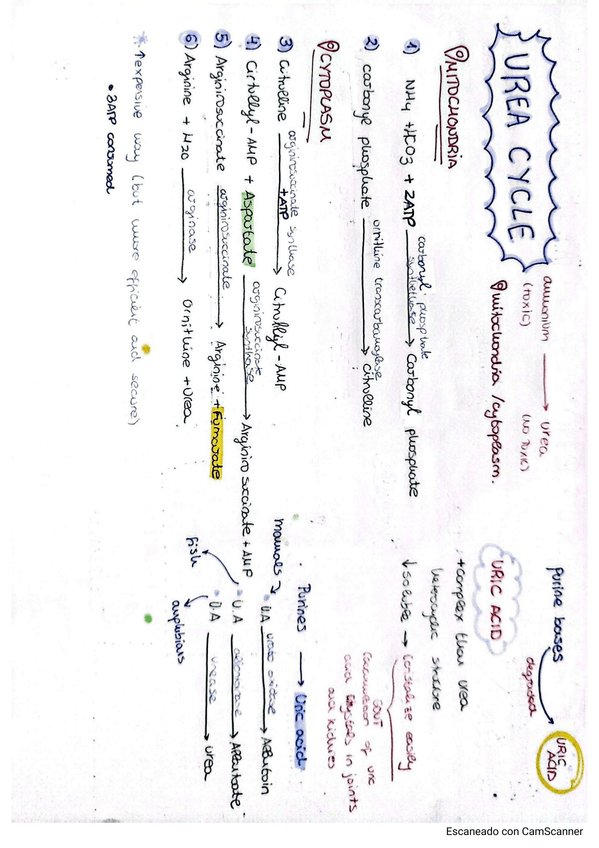 UREA CYCLE
ammonium → urea
(toxic) (NO TOXIC)
mitochondria / cytoplasm.
MITOCHONDRIA
1) NH4 + HCO3 + 2ATP carbonyl phosphate synthetase → Carbonyl phosphate
2) carbonyl phosphate ornitline transcarbamoylase → citrulline
CYTOPLASM
3) Citrulline arginirosuccinate synthase + ATP → Citrullyl-AMP
4) Citrullyl-AMP + Aspartate arginirosuccinate synthase → Arginiro succinate + AMP
5) Arginirosuccinate arginirosuccinate → Arginine + Fumarate
6) Arginine + H2O arginase → Ornitline + Urea
* ↑ expensive way (but more efficient and secure)
• 3ATP consumed
purine bases degraded → URIC ACID
URIC ACID
+ complex than urea
heterocyclic structure
↓ soluble → Crystalize easily
GOUT
accumulation of uric
acid crystals in joints
and kidneys
Purines → Uric acid
mammals U.A urate oxidase → Allantoin
fish U.A allantoinase → Allantoate.
amphibians U.A urease → urea
Escaneado con CamScanner